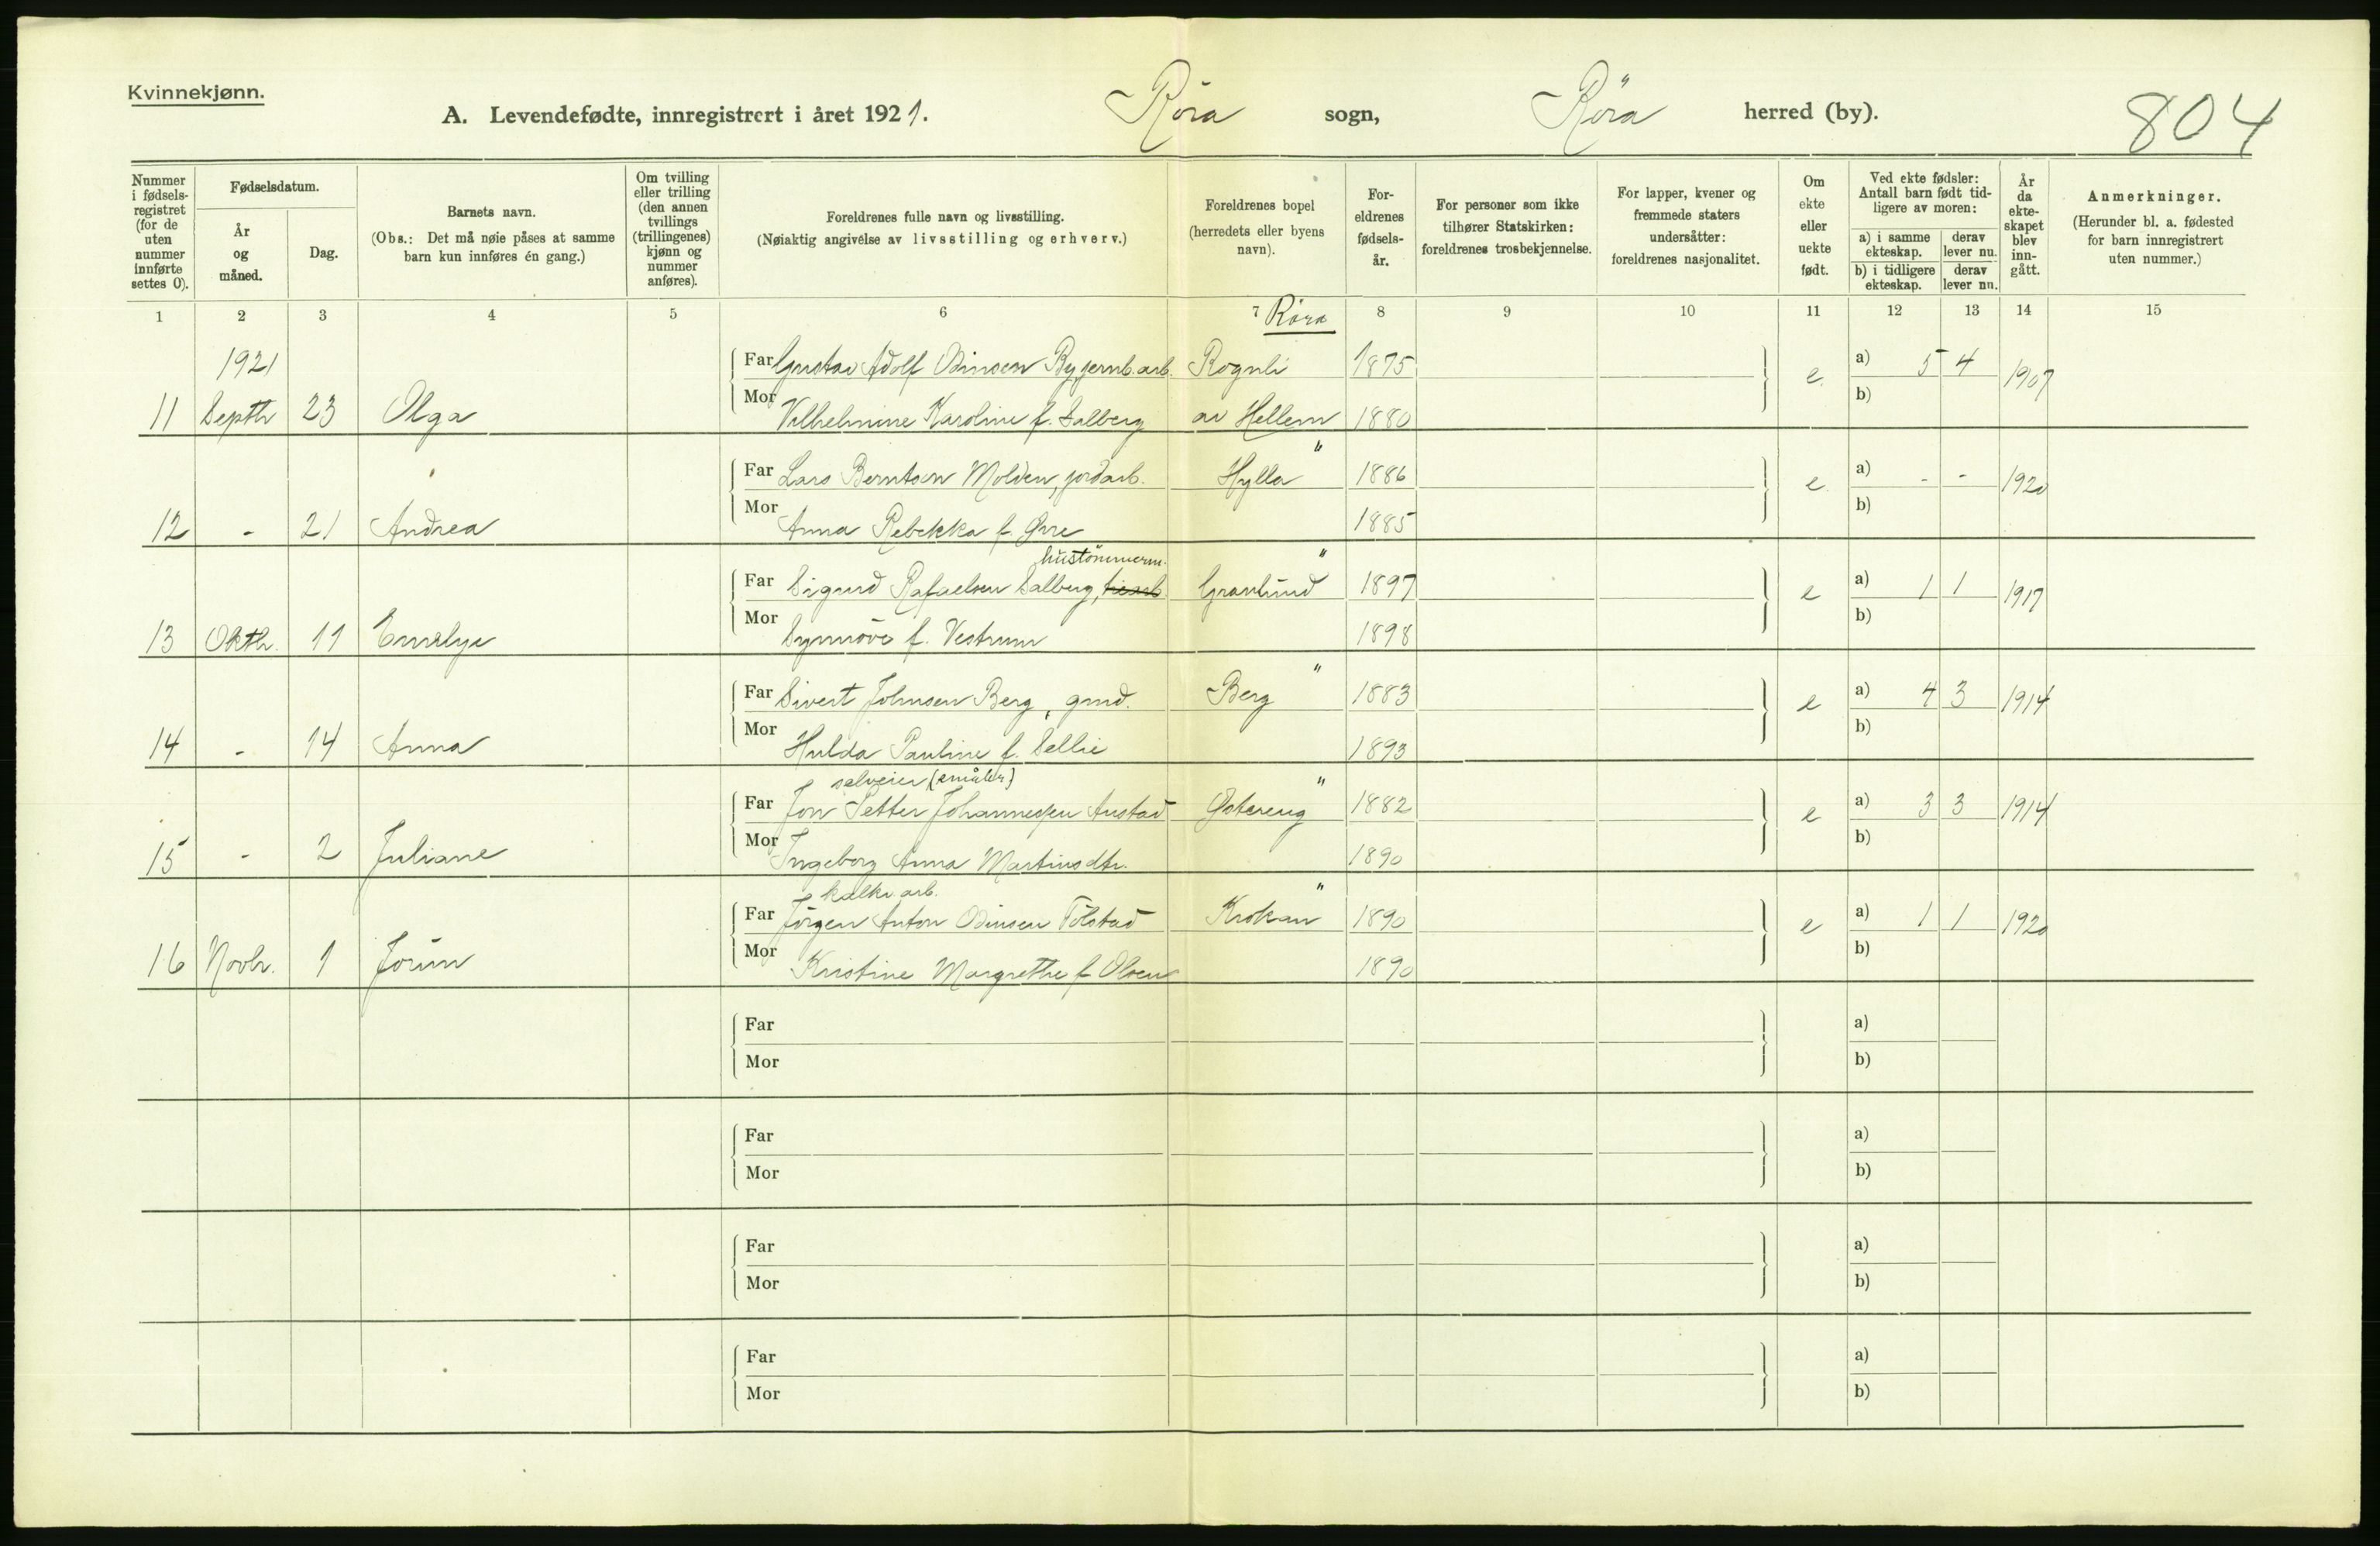 Kvinnekjønn.
A. Levendefødte, innregistrert i året 1921. Röra sogn, Röra herred (by). 804
Nummer i fødsels-registret (for de uten nummer innførte settes 0).
Fødselsdatum.
År og måned.
Dag.
Barnets navn.
(Obs.: Det må nøie påses at samme barn kun innføres én gang.)
Om tvilling eller trilling (den annen tvillings (trillingenes) kjønn og nummer anføres).
Foreldrenes fulle navn og livsstilling.
(Nøiaktig angivelse av livsstilling og erhverv.)
Foreldrenes bopel (herredets eller byens navn).
For-eldrenes fødsels-år.
For personer som ikke tilhører Statskirken: foreldrenes trosbekjennelse.
For lapper, kvener og fremmede staters undersåtter: foreldrenes nasjonalitet.
Om ekte eller uekte født.
Ved ekte fødsler: Antall barn født tid-ligere av moren:
a) i samme ekteskap. derav lever nu.
b) i tidligere ekteskap. derav lever nu.
År da ekte-skapet blev inn-gått.
Anmerkninger.
(Herunder bl. a. fødested for barn innregistrert uten nummer.)
1 2 3 4 5 6 7 Röra 8 9 10 11 12 13 14 15
1921 Far Gustav Adolf Odinsen By, jernb.arb. Rognli 1875 e. a) 5 4 1907
11 Septbr 23 Olga Mor Vilhelmine Karoline f. Salberg av Hellem 1880 b)
Far Lars Berntsen Molden, jordarb. Hylla " 1886 e. a) - - 1920
12 - 21 Andrea Mor Anna Rebekka f. Øvre 1885 b)
hustömmerm.
Far Sigurd Rafaelsen Salberg, Granlund " 1897 e a) 1 1 1917
13 Oktbr. 11 Mor Synnöve f. Vestrum 1898 b)
Far Sivert Johnsen Berg, grd. Berg " 1883 e a) 4 3 1914
14 - 14 Anna Mor Hulda Pauline f. Sellie 1893 b)
selveier (småbr)
Far Jon Petter Johannessen Austad Østereng " 1882 e a) 3 3 1914
15 - 2 Juliane Mor Ingeborg Anna Martinsdtr. 1890 b)
kalkv.arb.
Far Jörgen Anton Odinsen Tölstad Krokan " 1890 e a) 1 1 1920
16 Novbr. 1 Jorun Mor Kristine Margrethe f. Olsen 1890 b)
Far a)
Mor b)
Far a)
Mor b)
Far a)
Mor b)
Far a)
Mor b)